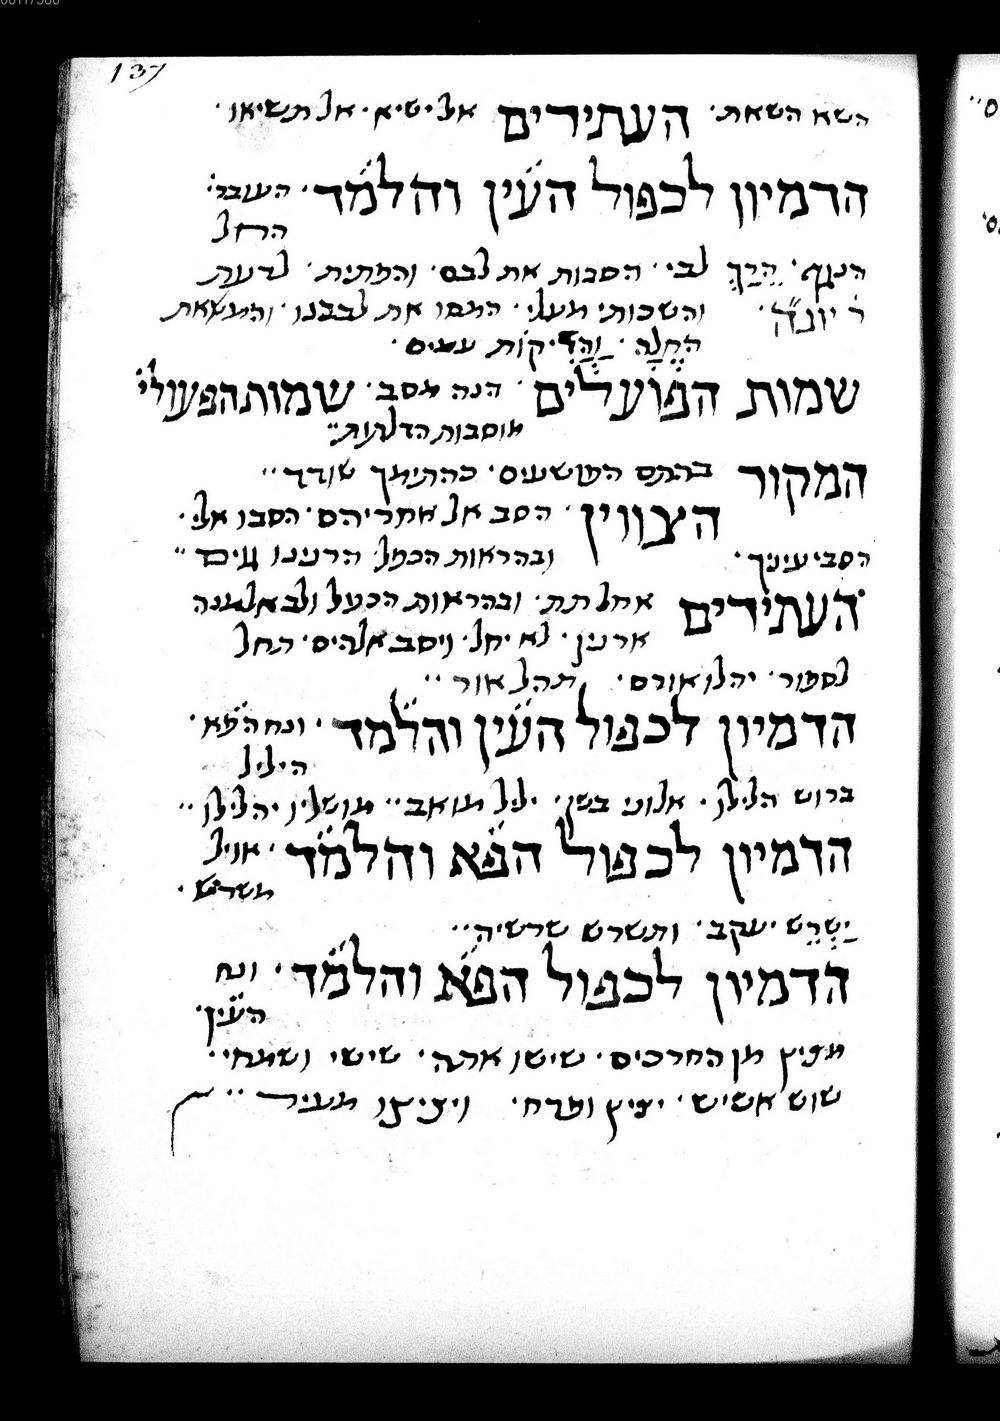 137
השא השאת· העתידים אל ישיא· אל תשיאו·
הדמיון לכפול העין והלמד· העובר·
החל
הנגף· הֵרַךְ לבי· הסבות את לבם· והמתית· לדעת
ר יונה· והשכותי מעלי· המסו את לבבנו· והתשאת
הֶחְלָה· וַהֲדִיקוֹת עמים·
שמות הפועלים· הנה מסב· שמות הפעולי
מוסבות הדלתות··
המקור בהתם הפושעים· כהתימך שודד··
הצווין· הסב אל אחריהם· הסבו אלי·
הסבי עיניך· ובהראות הכפל הרנינו גוים··
העתידים אחל תת· ובהראות הכפל ולב אלמנה
ארנין· לא יחל· ויסב אלהים· תחל
לספור· יהלו אורם· תהל אור··
הדמיון לכפול העין והלמד· ונח הפא·
היליל
ברוש הלילו· אלוני בשן· ילל מואב·· מושליו יהלילו··
הדמיון לכפול הפא והלמד· אויל
משריש·
יַשְׁרֵשׁ יעקב· ותשרש שרשיה··
הדמיון לכפול הפא והלמד· ונח
העין·
מציץ מן החרכים· שישו אתה· שישי ושמחי·
שוש אשיש· יציץ ופרח· ויציצו מעיר··